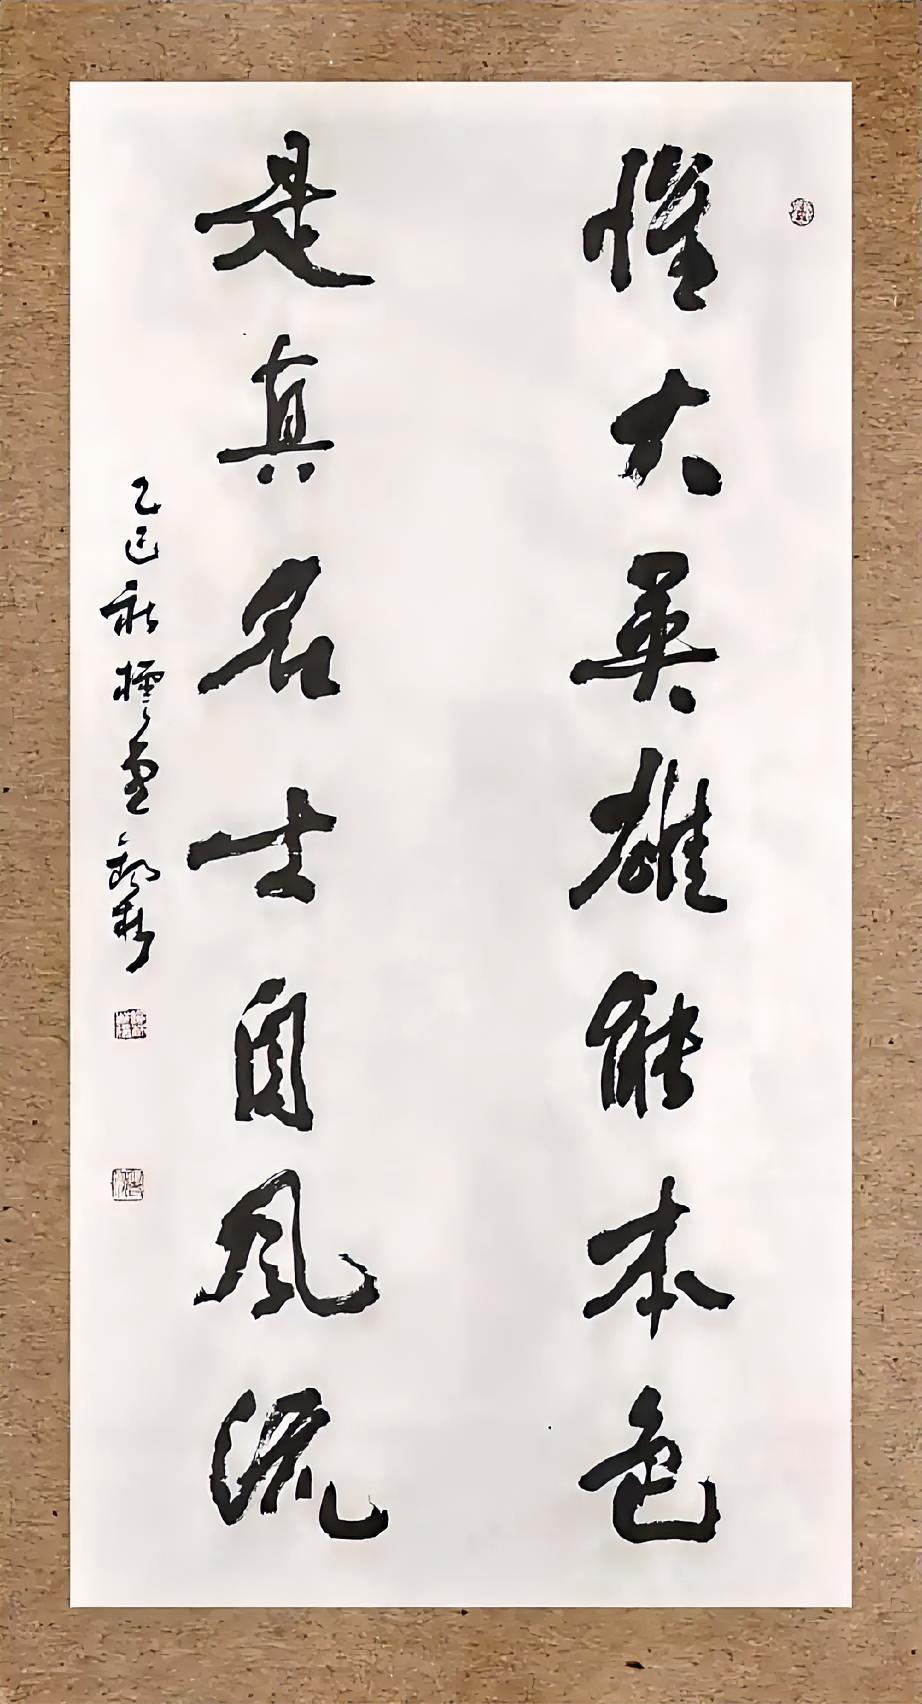 惟大英雄能本色
是真名士自风流
乙巳秋